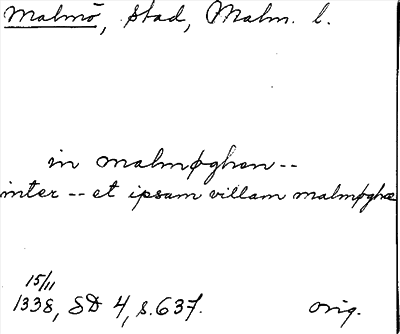 Malmö, Stad, Malm. l.
in malmøghon --
inter -- et ipsam villam malmøghæ
15/11
1338, SD 4, s. 637. orig.